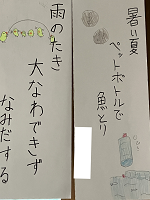 暑い夏
ペットボトルで
魚とり
雨のたき
大なわできず
なみだする